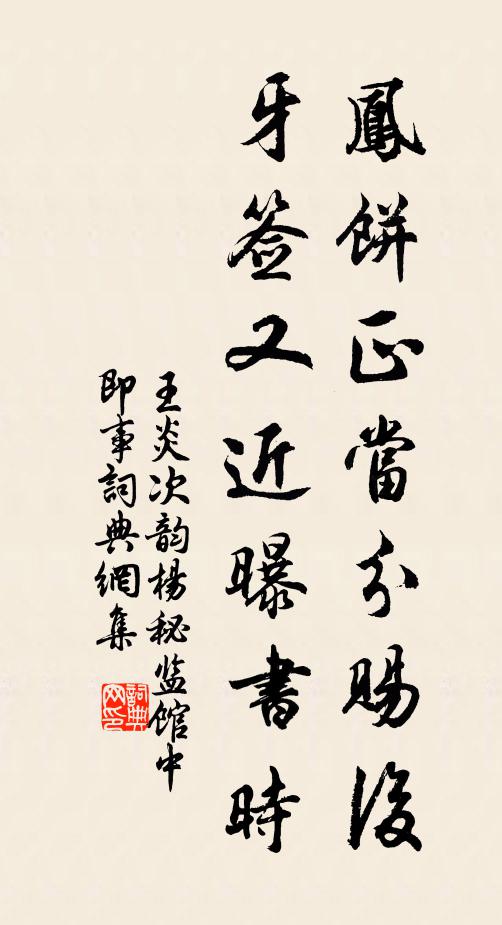 鳳餅正當分賜後
牙签又近曝書時
王炎次韵楊秘监馆中
即事詞典網集
詞典网印